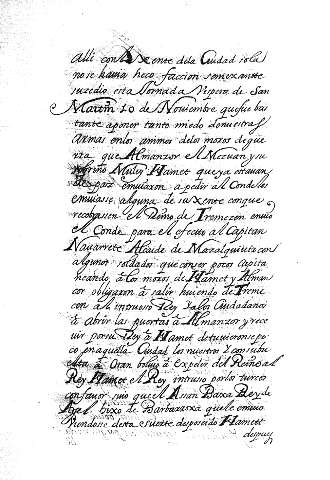 alli con la xente dela Ciudad isola
no se havia heco faccion semexante
suzedio esta Jornada Vispera de San
Martin 10 de Noviembre que fue bas
tante a poner tanto miedo de nuestras
armas en los animos de los moros de gue
rra que Almanzor el Mezuar y su
sobrino Muley Hamet que ya estauan
de paz enuiaron a pedir al Conde les
enuiase alguna de su xente con que
recobrasen el Reino de Tremezen enuio
el Conde para el efecto al Capitan
Navarrete Alcaide de Mazalquiuir con
algunos soldados que con ser pocos capita
neando a los moros de Hamet y Alman
cor obligaron a salir huiendo de Treme
cen a la intrusso Rey y a los Ciudadanos
a abrir las puertas a Almanzor y rece
uir por su Rey a Hamet detuvieronse po
co en aquella Ciudad los nuestros
a Oran boluio a Expeler del Reino al
Rey Hamet el Rey intruso por los turcos
con fauor suio que el Asan Baxa Rey de
Argel hixo de Barbarroxa que le enuio
Viendose desta suerte desposeido Hameet
despues